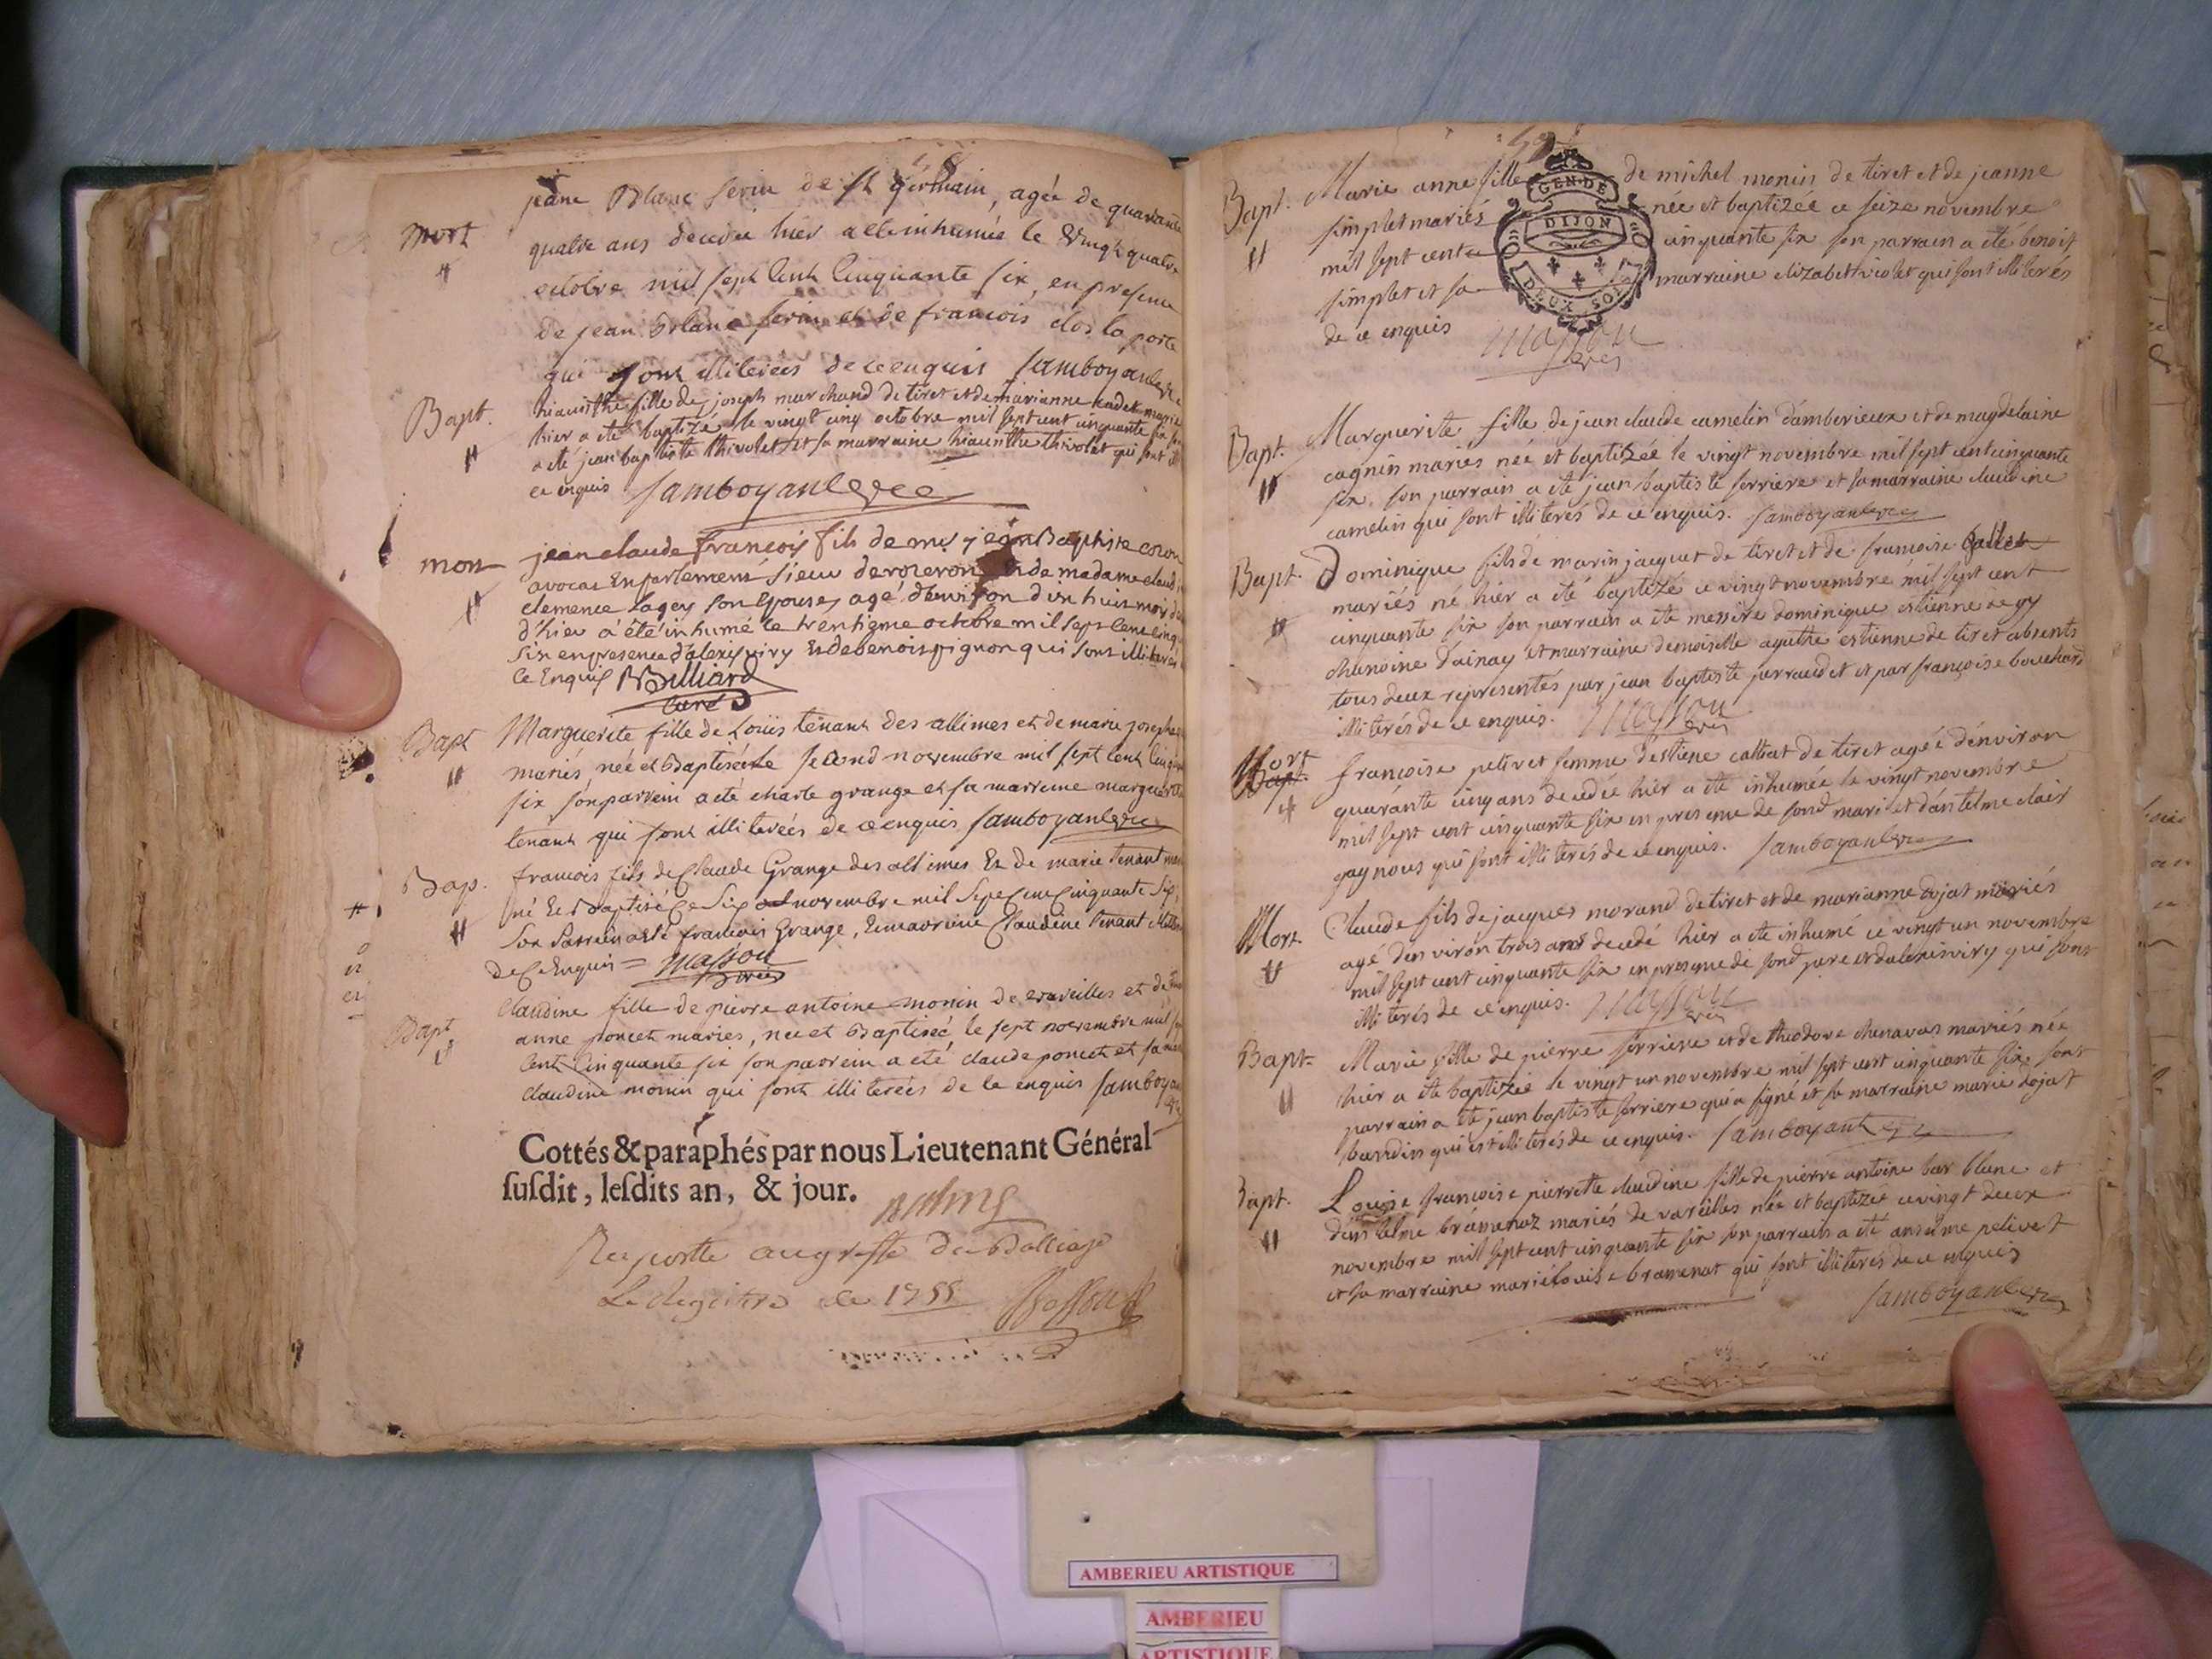 Mort
jeane Blanc serin de st germain, agée de quarante
quatre ans decedée hier a eté inhumée le vingt quatre
octobre mil sept cent cinquante six, en presence
de jean Blanc serin et de francois clos la porte
qui sont illiterées de ce enquis Samboyan
Bapt.
hiacinthe fille de joseph marchand de tiret et de marianne cadet mariés
hier a été baptizé le vingt cinq octobre mil sept cent cinquante six
a eté jean baptiste thivolet et sa marraine hiacinthe thivolet qui sont
ce enquis Samboyan
mort
jean claude françois fils de jean Baptiste
avocat En parlement sieur de et de madame
clemence son Epouse, agé d'environ huit mois
d'hier a été inhumé le trentieme octobre mil sept cent cinq
six en presence d'alexis viry Et de benoit pignon qui sont illiterés
ce Enquis Billiard
curé
Bapt
Marguerite fille de Loüis tenant des allimes et de marie josephe
mariés, née et Baptisée le second novembre mil sept cent
six son parrein a eté charle grange et sa marreine marguerite
tenant qui sont illiterées de ce enquis Samboyan
Bap.
francois fils de Claude Grange des allimes Et de marie tenant
né Et Baptisé Ce Six novembre mil Sept Cent Cinquante Six,
Son Parrein a eté francois Grange, Et marreine Claudine tenant
de Ce Enquis = masson
Bapt
claudine fille de pierre antoine monin de vareilles et de
anne poncet mariés, née et Baptisée le sept novembre mil
cent cinquante six son parrein a eté claude poncet et sa
claudine monin qui sont illiterées de ce enquis Samboyan
Cottés & paraphés par nous Lieutenant Général
susdit, lesdits an, & jour.
Raporté au greffe du Balliage
Le Registre de 1755
Bapt.
Marie anne fille de michel monin de tiret et de jeanne
simplet mariés née et baptizée ce seize novembre
mil sept cent cinquante six son parrain a été benoit
simplet et sa marraine elizabet violet qui sont illiterés
de ce enquis masson
GEN. DE
DIJON
DEUX SOLS
Bapt.
Marguerite fille de jean claude camelin d'amberieux et de magdelaine
cagnin mariés née et baptizée le vingt novembre mil sept cent cinquante
six. son parrain a eté jean baptiste ferriere et sa marraine claudine
camelin qui sont illiterés de ce enquis. Samboyan
Bapt.
Dominique fils de marin jacquet de tiret et de francoise
mariés né hier a été baptizé ce vingt novembre mil sept cent
cinquante six son parrain a eté messire dominique estienne
chanoine d'ainay et marraine demoiselle agathe estienne de tiret absents
tous deux representés par jean baptiste perraudet et par françoise bouchard
illiterés de ce enquis. masson
Mort
françoise petivet femme d'estiene de tiret agée d'environ
quarante cinq ans decedée hier a été inhumée le vingt novembre
mil sept cent cinquante six en presence de sond mari et d'antelme clair
gagnoux qui sont illiterés de ce enquis. Samboyan
Mort.
Claude fils de jacques morand de tiret et de marianne dojat mariés
agé d'environ trois ans decedé hier a eté inhumé ce vingt un novembre
mil sept cent cinquante six en presence de sond pere et d'alexis viry qui sont
illiterés de ce enquis. masson
Bapt.
Marie fille de pierre ferriere et de theodore chenavas mariés née
hier a été baptizée le vingt un novembre mil sept cent cinquante six. son
parrain a eté jean baptiste ferriere qui a signé et sa marraine marie dojat
baudin qui est illiterés de ce enquis. Samboyan
Bapt.
Louise françoise pierrette claudine fille de pierre antoine bar blanc et
d'antelme bramenoz mariés de vareilles née et baptizée ce vingt deux
novembre mil sept cent cinquante six son parrain a été anselme petivet
et sa marraine marie louise bramenat qui sont illiterés de ce enquis
Samboyan
AMBERIEU ARTISTIQUE
AMBERIEU
ARTISTIQUE